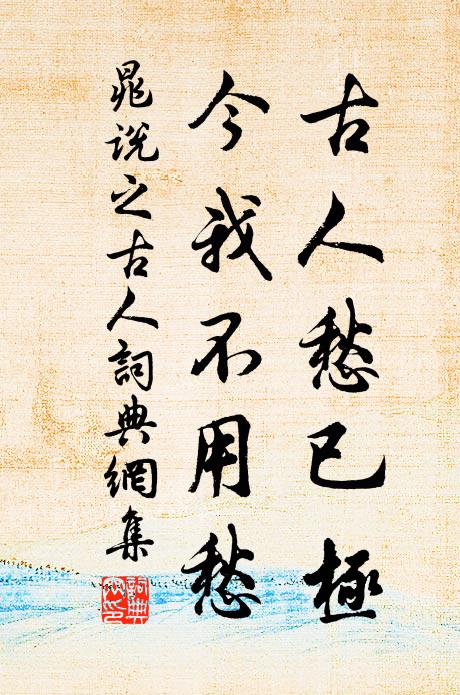 古人愁已極
今我不用愁
晁說之古人詞典網集